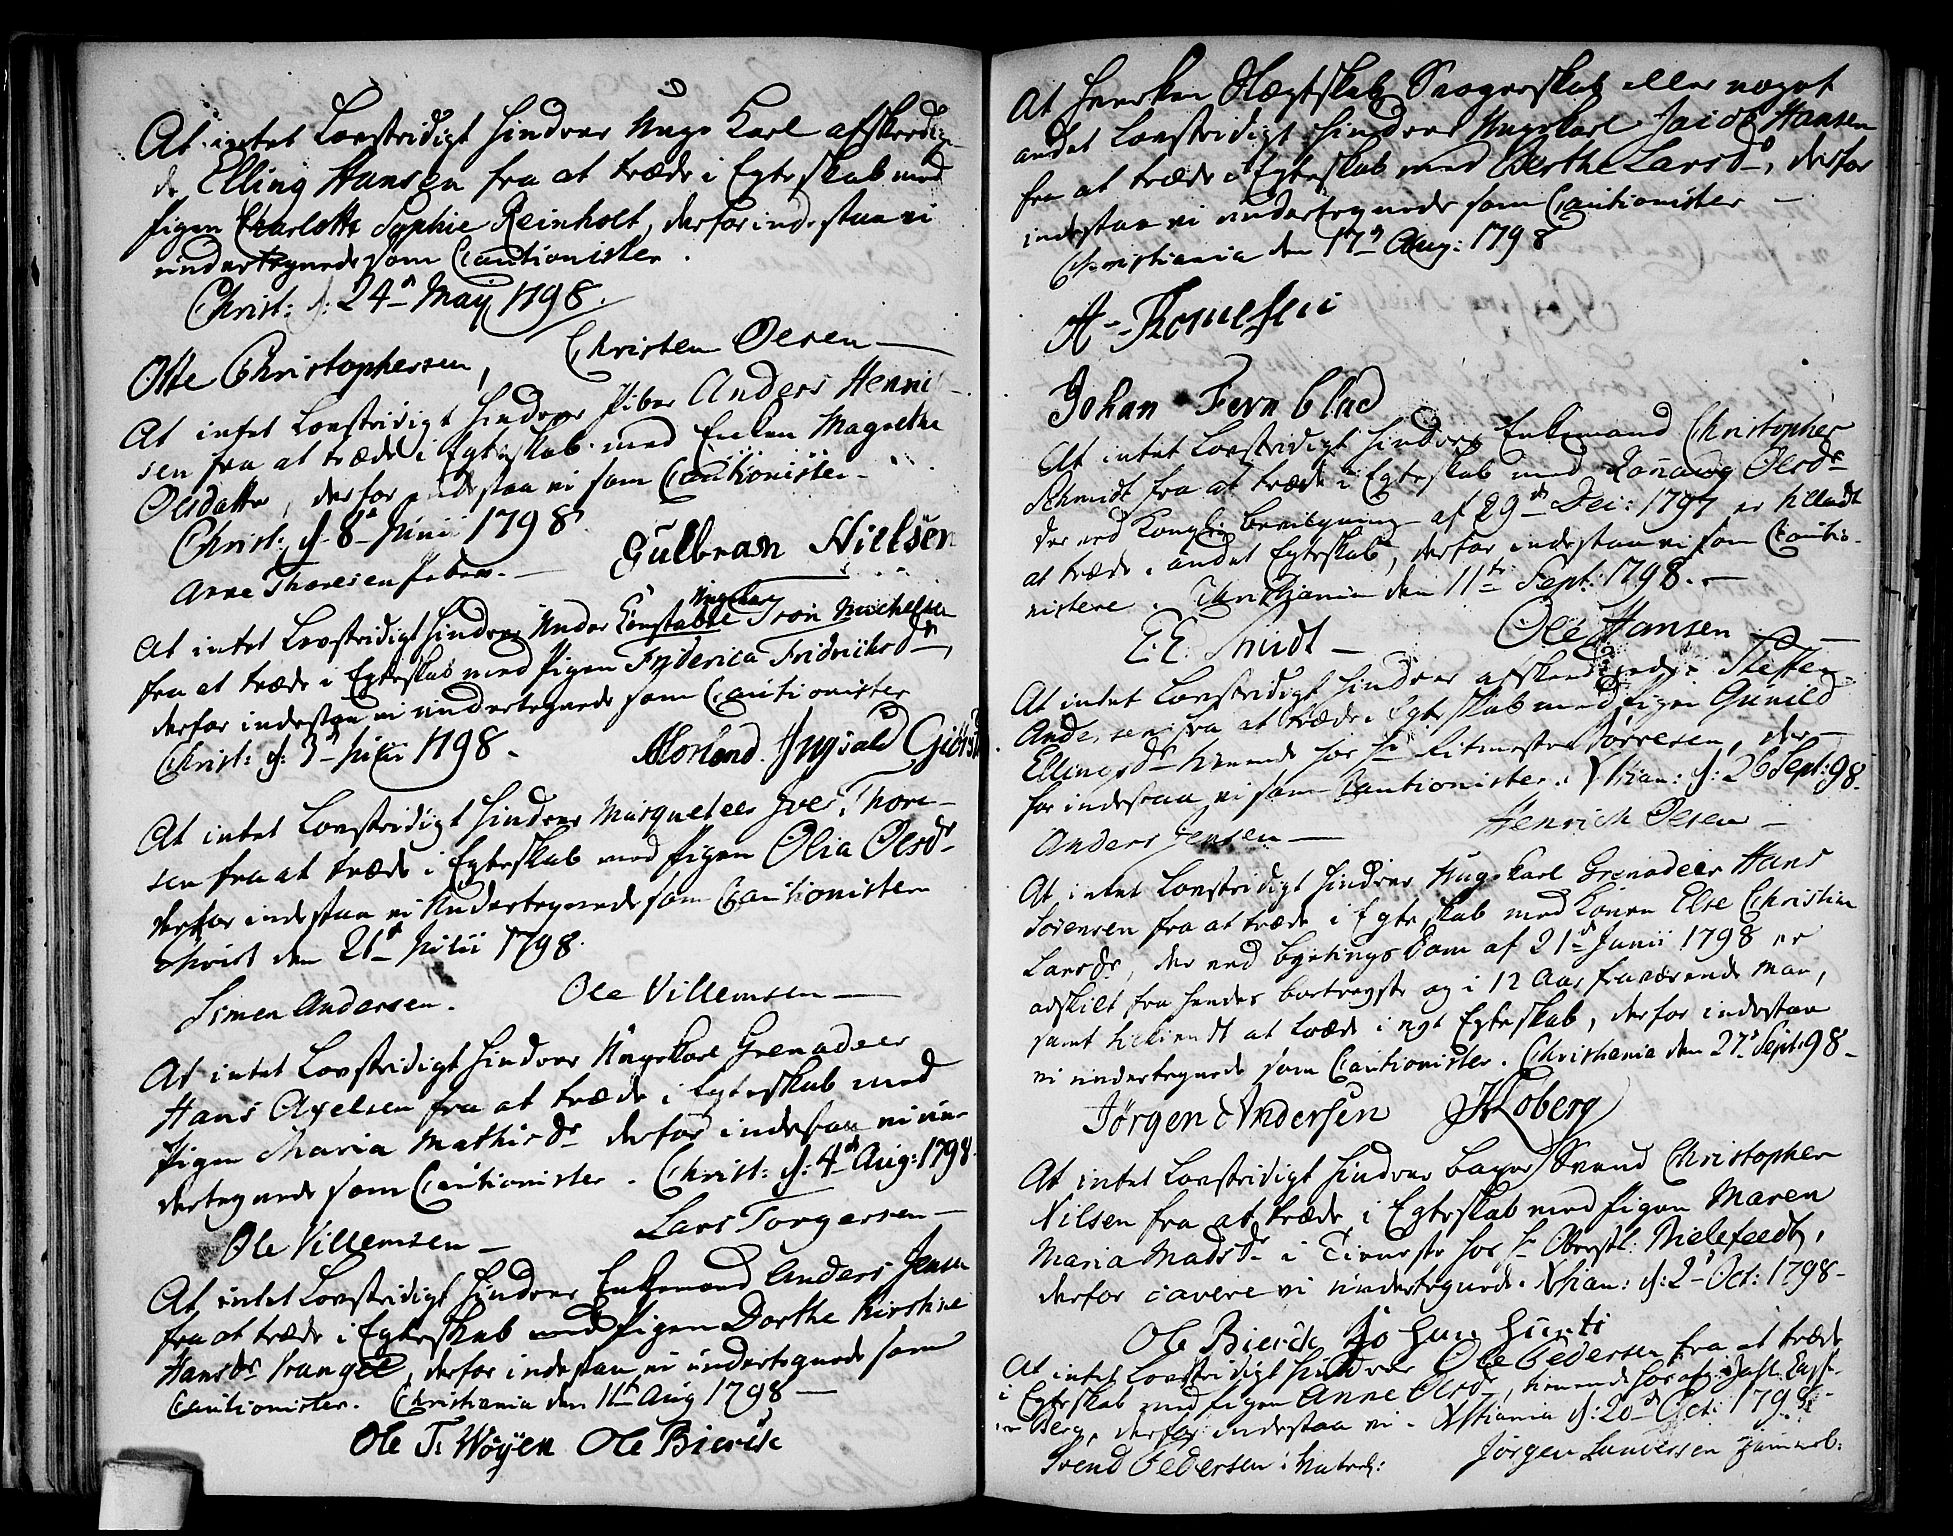 At intet Lovstridigt hindrer Unge Karl afskeedig-
de Elling Hansen fra at træde i Egteskab med
Pigen Charlotte Sophie Reinholt, derfor indestaae vi
undertegnede som Cautionister.
Christ: d: 24de May 1798.
Otte Christophersen, Christen Oesen
At intet Lovstridigt hindrer Piber Anders Henric-
sen fra at træde i Egteskab med Enken Magrethe
Olsdatter, derfor indestaa vi som Cautionister.
Christ: d. 8de Junii 1798.
Arne Thoresen Piber. Gulbran Nielsen
At intet Lovstridigt hindrer Under Constable Ungekarl Tron Michelsen
fra at træde i Egteskab med Pigen Friderica Fridrichsdr,
derfor indestaa vi undertegnede som Cautionister
Christ: d: 1798. Morland. Ingvald
At intet Lovstridigt hindrer Musqueteer Iver Thore-
sen fra at træde i Egteskab med Pigen Olia Olsdr
derfor indestaa vi Undertegnede som Cautionister
Christ den 21de Julii 1798.
Simen Andersen. Ole Villemsen
At intet Lovstridigt hindrer Ungekarl Grenadeer
Hans Axelsen fra at træde i Egteskab med
Pigen Maria Mathisdr derfor indestaa vi un-
dertegnede som Cautionister. Christ: d: 4de Aug: 1798.
Ole Villemsen Lars Torgersen
At intet Lovstridigt hindrer Enkemand Anders Jensen
fra at træde i Egteskab med Pigen Dorthe Kirstine
Hansdr Prangel, derfor indestaa vi undertegnede som
Cautionister. Christiania den 11te Aug 1798
Ole T. Wøyen Ole Bierch
At hverken Slægtskab Svogerskab eller noget
andet Lovstridigt hindrer Ungekarl Jacob Hansen
fra at træde i Egteskab med Berthe Larsdr, derfor
indestaa vi undertegnede som Cautionister
Christiania den 17de Aug: 1798
A. Thomesen
Johan Fernblad
At intet Lovstridigt hindrer Enkemand Christopher
Schmidt fra at træde i Egteskab med Rønnaug Olsdr
der ved Kongl: bevilgning af 29de Dec: 1797 er tilladt
at træde i andet Egteskab, derfor indestaa vi som Cautio-
nistere. Christiania den 11te Sept: 1798.
E. E. Smidt Ole Hansen
At intet Lovstridigt hindrer afskeedigede Steffen
Andersen fra at træde i Egteskab med Pigen Gunild
Ellingsdr tienende hos Hr Ritmester Tørresen, der-
for indestaa vi som Cautionister. Xstian: d: 26 Sept: 98.
Anders Jensen Henrich Oesen
At intet Lovstridigt hindrer Ungekarl Grenadeer Hans
Sørensen fra at træde i Egteskab med Konen Else Christine
Larsdr, der ved bytings Dom af 21de Junii 1798 er
adskilt fra hendes bortrejste og i 12 Aar fraværende Man,
samt tilkiendt at træde i nyt Egteskab, derfor indestaa
vi undertegnede som Cautionister. Christiania den 27de Sept: 98
Jørgen Andersen Koberg
At intet Lovstridigt hindrer bager Svend Christopher
Nilsen fra at træde i Egteskab med Pigen Maren
Maria Madsdr i Tieneste hos Hr Oberstl: Bielefeldt,
derfor cavere vi undertegnede. Xstian: d: 2de Oct: 1798
Ole Bierch Johan
At intet Lovstridigt hindrer Ole Pedersen fra at træde
i Egteskab med Pigen Anne Olsdr, tienende hos
Berg, derfor indestaa vi. Xstiania d: 20de Oct: 1798.
Svend Pedersen Jørgen